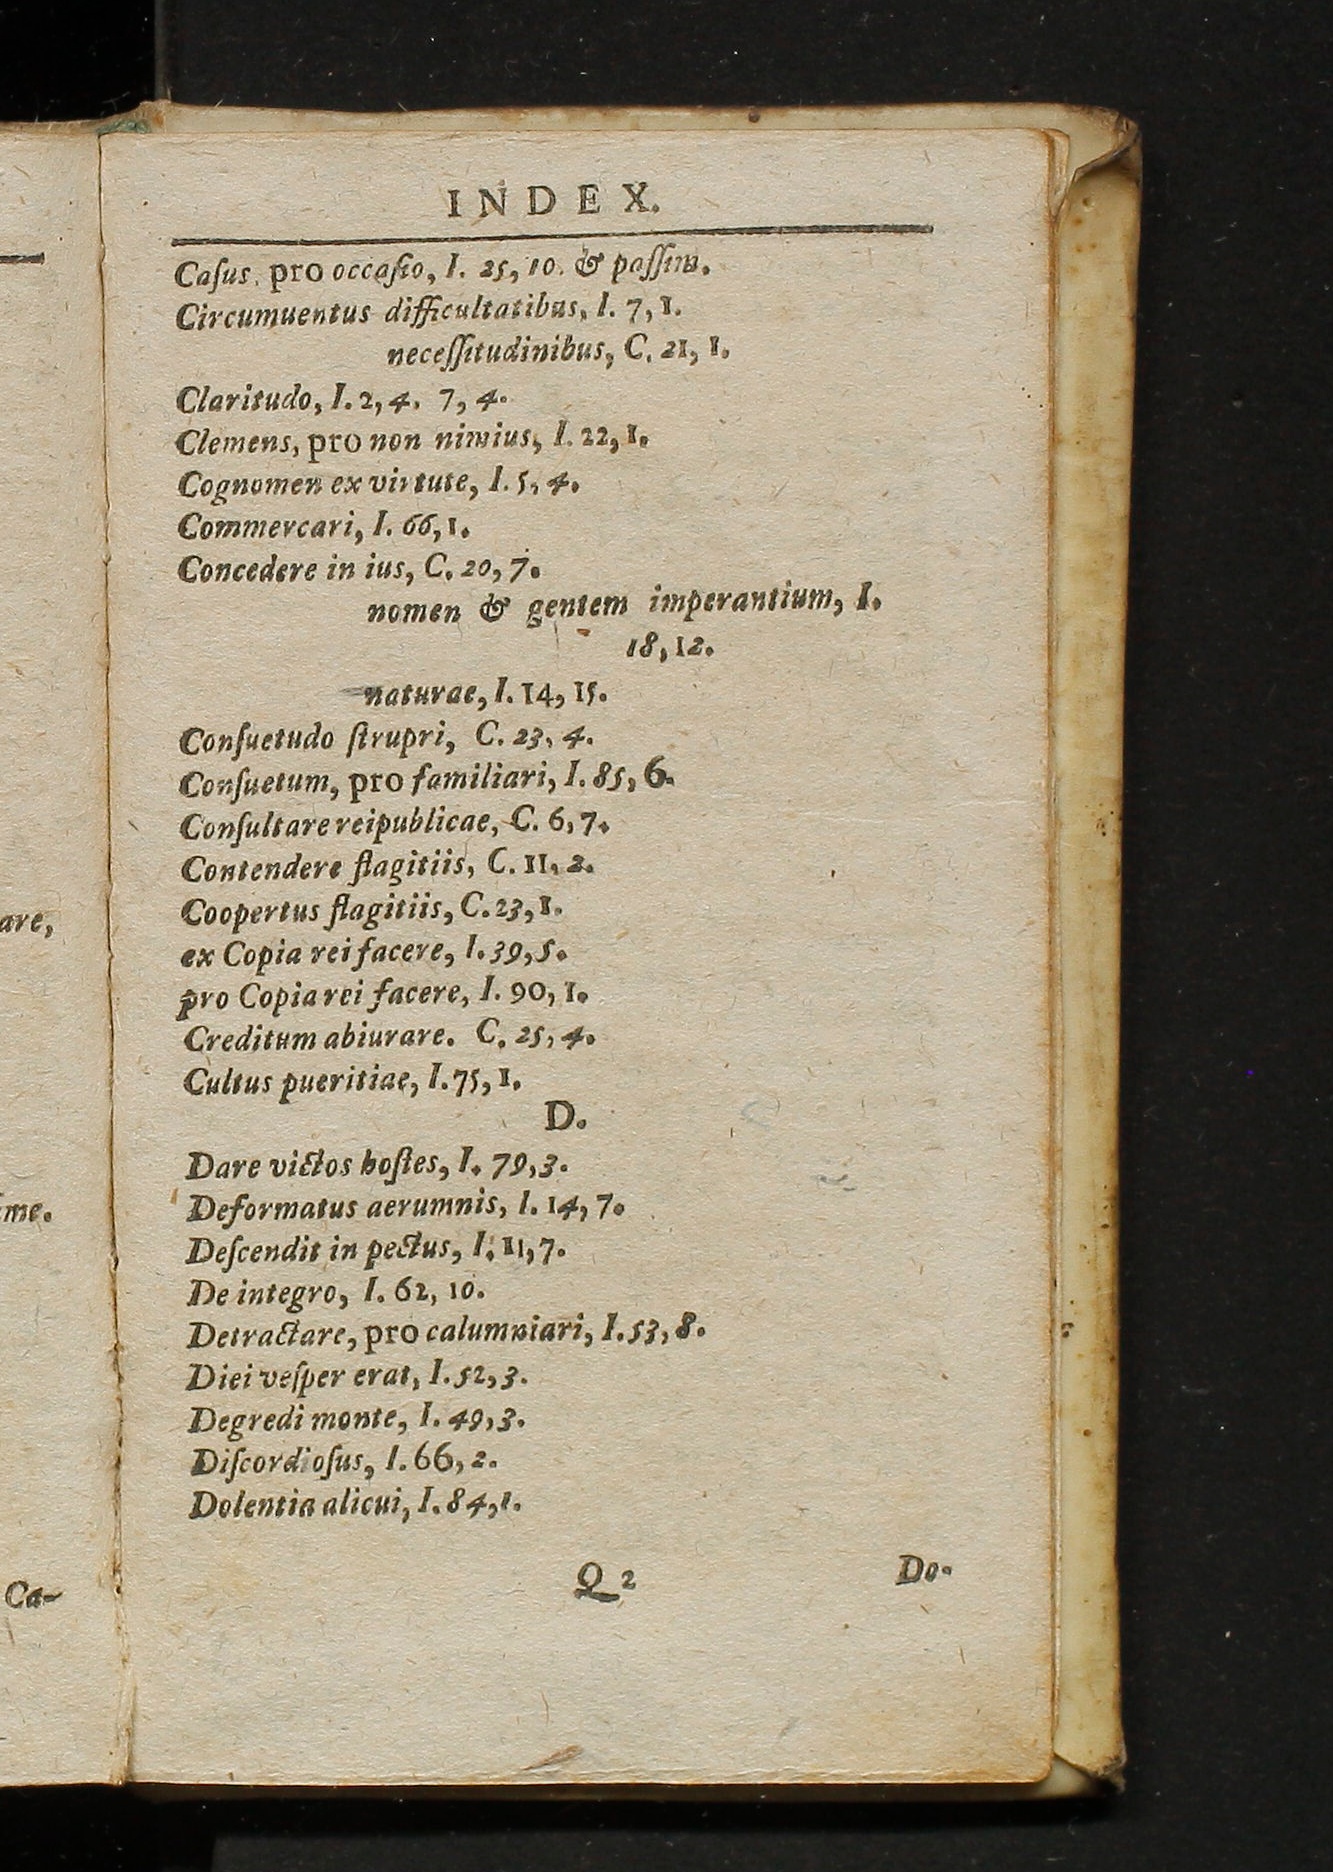 INDEX.
Caſus, pro occaſio, I. 25, 10. & paſſim.
Circumuentus difficultatibus, I. 7, 1.
neceſſitudinibus, C. 21, 1.
Claritudo, I. 2, 4. 7, 4.
Clemens, pro non nimius, I. 22, 1.
Cognomen ex virtute, I. 5, 4.
Commercari, I. 66, 1.
Concedere in ius, C. 20, 7.
nomen & gentem imperantium, I.
18, 12.
naturae, I. 14, 15.
Conſuetudo ſtrupri, C. 23, 4.
Conſuetum, pro familiari, I. 85, 6.
Conſultare reipublicae, C. 6, 7.
Contendere flagitiis, C. 11, 2.
Coopertus flagitiis, C. 23, 1.
ex Copia rei facere, I. 39, 5.
pro Copia rei facere, I. 90, 1.
Creditum abiurare. C. 25, 4.
Cultus pueritiae, I. 75, 1.
D.
Dare victos hoſtes, I. 79, 3.
Deformatus aerumnis, I. 14, 7.
Deſcendit in pectus, I. 11, 7.
De integro, I. 62, 10.
Detractare, pro calumniari, I. 53, 8.
Diei veſper erat, I. 52, 3.
Degredi monte, I. 49, 3.
Diſcordioſus, I. 66, 2.
Dolentia alicui, I. 84, 1.
Q 2 Do-
are,
me.
Ca-